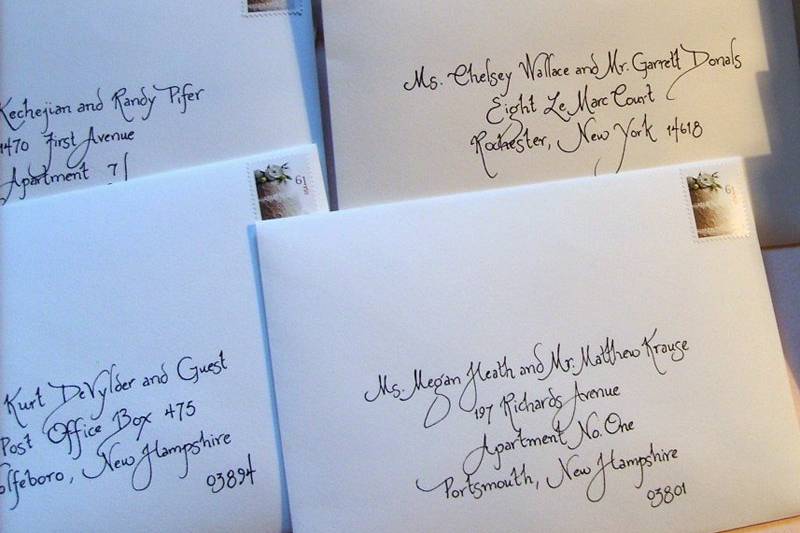 Kechejian and Randy Pifer
1470 First Avenue
Apartment 7
Ms. Chelsey Wallace and Mr. Garrett Donals
Eight Le Marc Court
Rochester, New York 14618
61
Kurt DeVylder and Guest
Post Office Box 475
olfeboro, New Hampshire
03894
61
Ms. Megan Heath and Mr. Matthew Krause
197 Richards Avenue
Apartment No. One
Portsmouth, New Hampshire
03801